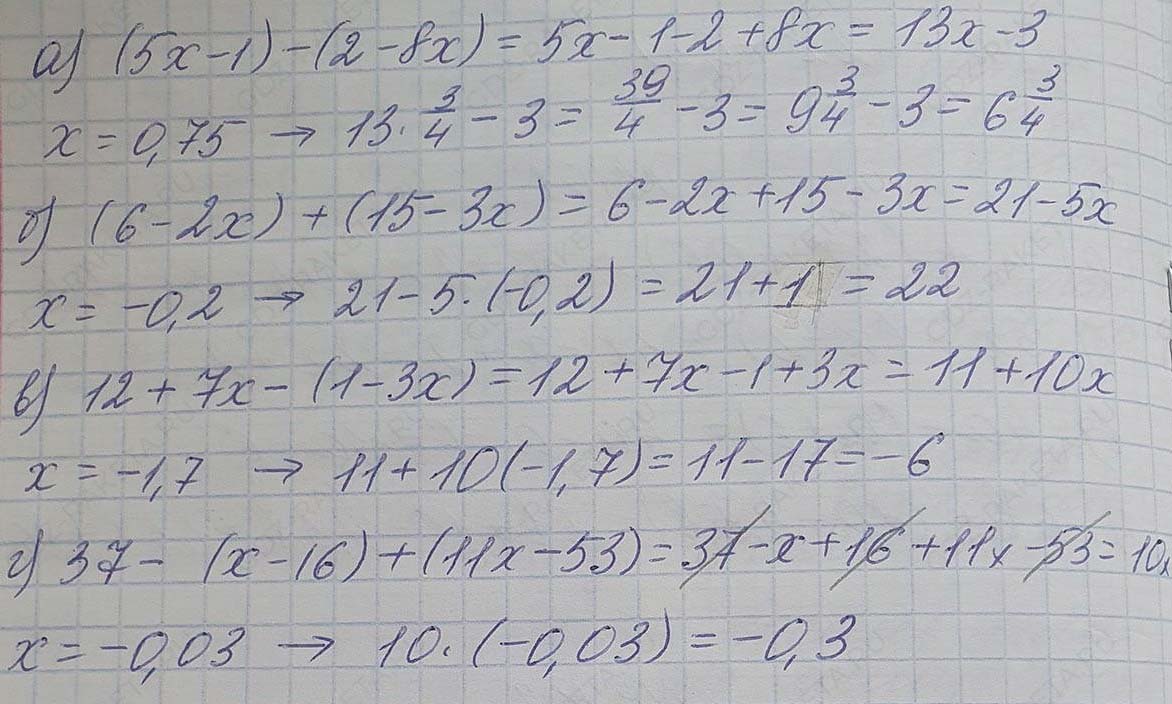 а) (5x-1)-(2-8x) = 5x-1-2+8x = 13x-3
x = 0,75 → 13·3/4 - 3 = 39/4 - 3 = 9 3/4 - 3 = 6 3/4
б) (6-2x)+(15-3x) = 6-2x+15-3x = 21-5x
x = -0,2 → 21-5·(-0,2) = 21+1 = 22
в) 12+7x-(1-3x) = 12+7x-1+3x = 11+10x
x = -1,7 → 11+10(-1,7) = 11-17 = -6
г) 37-(x-16)+(11x-53) = 37-x+16+11x-53 = 10x
x = -0,03 → 10·(-0,03) = -0,3